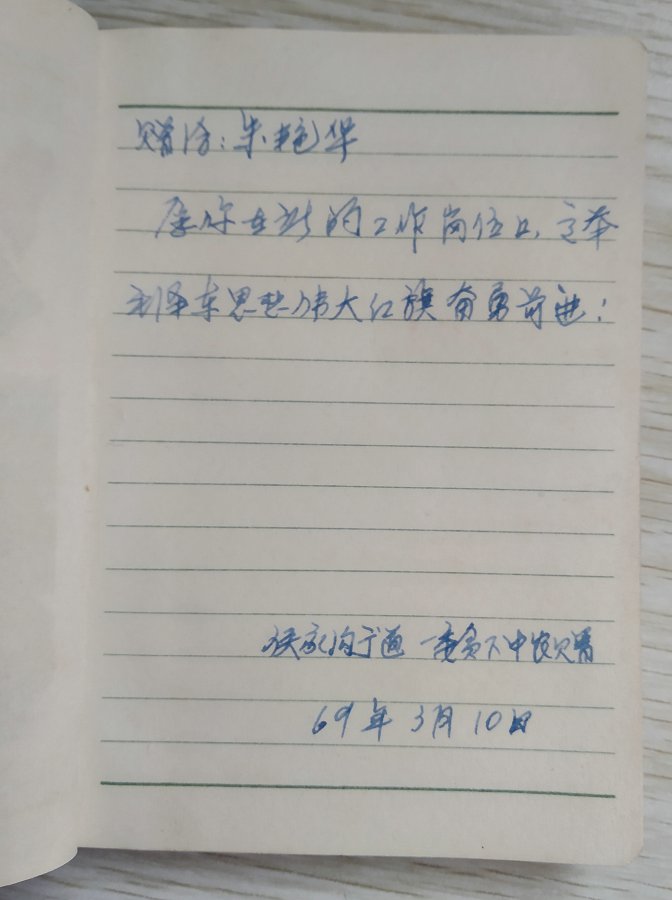 赠给：朱艳华
愿你在新的工作岗位上，高举
毛泽东思想伟大红旗奋勇前进！
侯家沟 一委贫下中农赠
69年3月10日